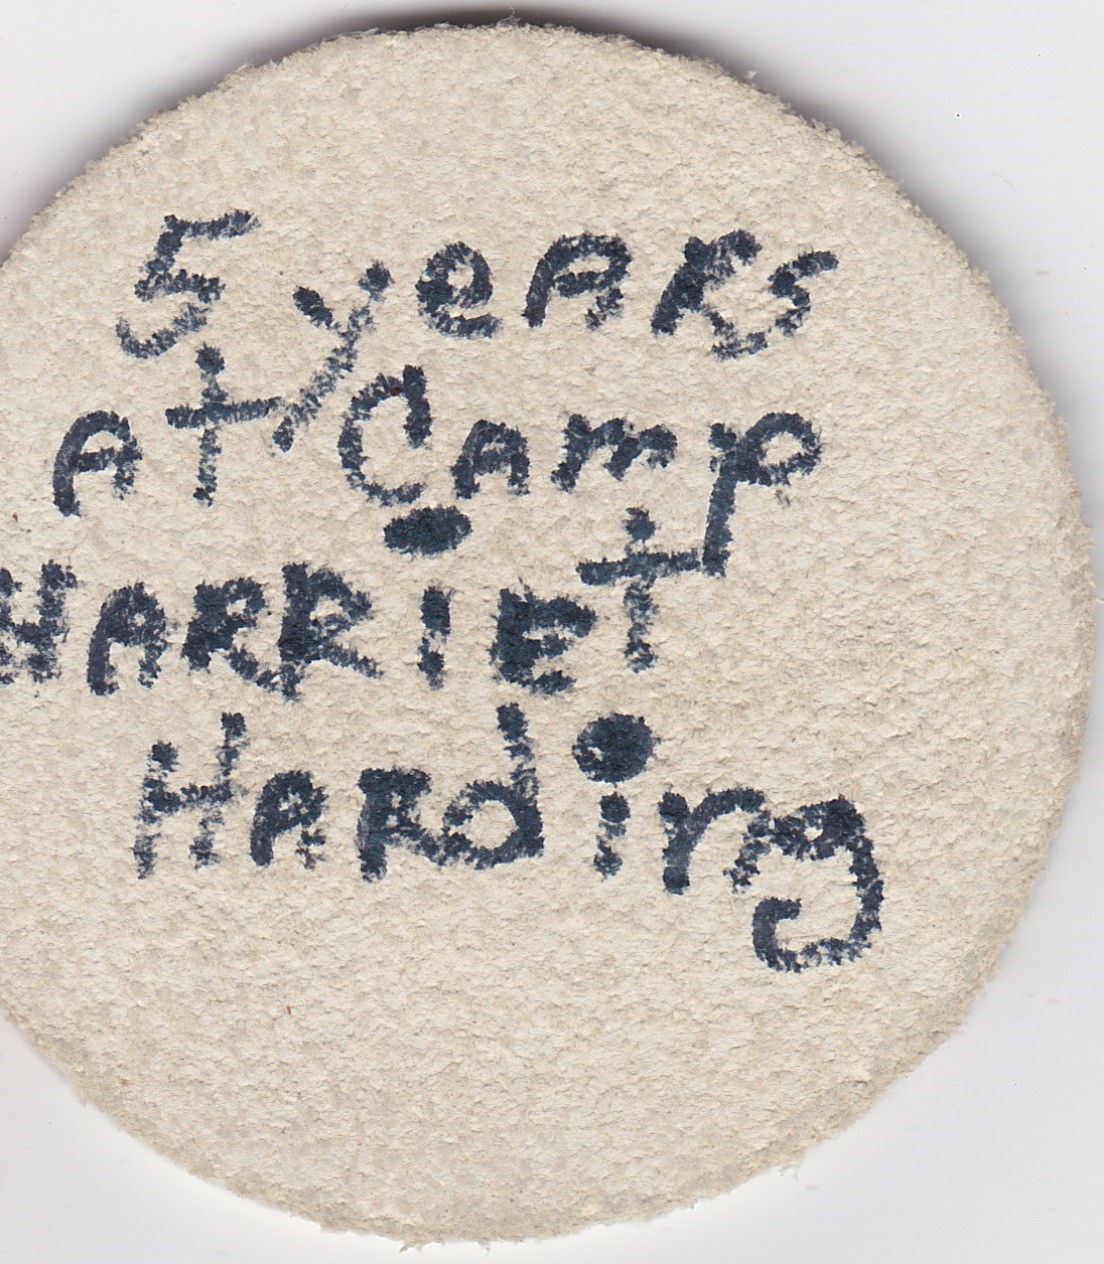 5 yeARs
At CAmp
HARRIEt
HARding